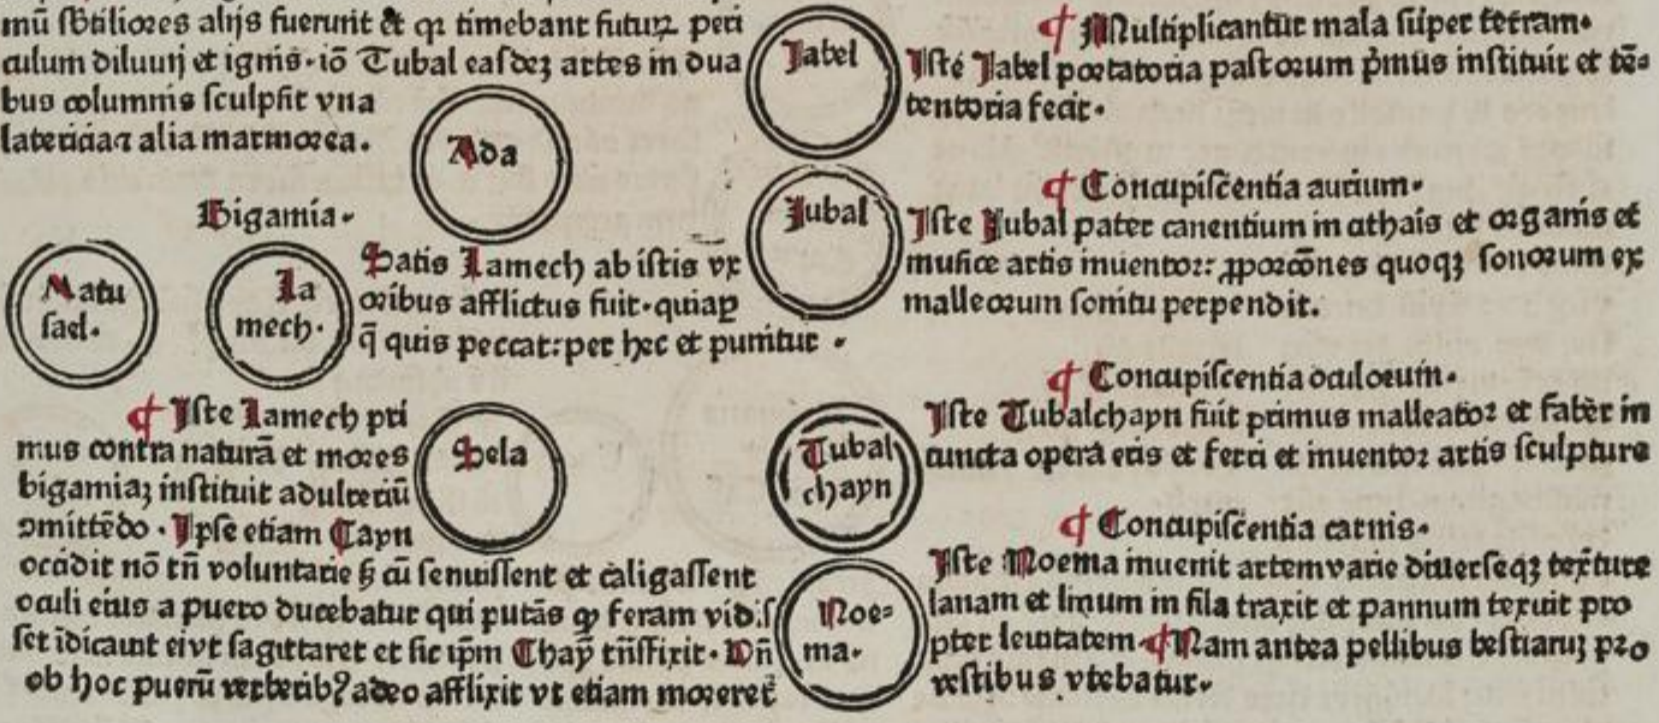 mū ſbtiliores alijs fuerunt & qꝛ timebant futuꝝ peri
culum diluuij et ignis·iō Tubal eaſdeȝ artes in dua
bus columnis ſculpſit vna
latericiaꝫ alia marmorea.
Ada
Bigamia·
Matu
ſael·
La
mech·
Satis Lamech ab iſtis vx
oribus afflictus fuit·quia ꝑ
q̄ quis peccat:per hec et punitur ·
¶ Iſte Lamech pri
mus contra naturā et mores
bigamiaȝ inſtituit adulteriū
ꝯmittēdo · Ipſe etiam Cayn
Sela
occidit nō tn̄ voluntarie ſꝫ cū ſenuiſſent et caligaſſent
oculi eius a puero ducebatur qui putās ꝙ feram vidiſ
ſet īdicauit ei vt ſagittaret et ſic ip̄m Chayn̄ trāſfixit· Vn̄
ob hoc puerū verberibꝰ adeo afflixit vt etiam moreret᷑
Jabel
¶ Multiplicantur mala ſuper terram·
Iſte Jabel portatoria paſtorum p̍mus inſtituit et tē=
tentoria fecit·
Jubal
¶ Concupiſcentia aurium·
Iſte Jubal pater canentium in cithais et organis et
muſice artis inuentor: ꝓporcōnes quoqȝ ſonorum ex
malleorum ſonitu perpendit.
Tubal
chayn
¶ Concupiſcentia oculorum·
Iſte Tubalchayn fuit primus malleator et faber in
cuncta opera eris et ferri et inuentor artis ſculpture
Noe=
ma·
¶ Concupiſcentia carnis·
Iſte Noema inuenit artem varie diuerſeqȝ texture
lanam et linum in fila traxit et pannum texuit pro
pter leuitatem ¶ Nam antea pellibus beſtiaruȝ pro
veſtibus vtebatur·